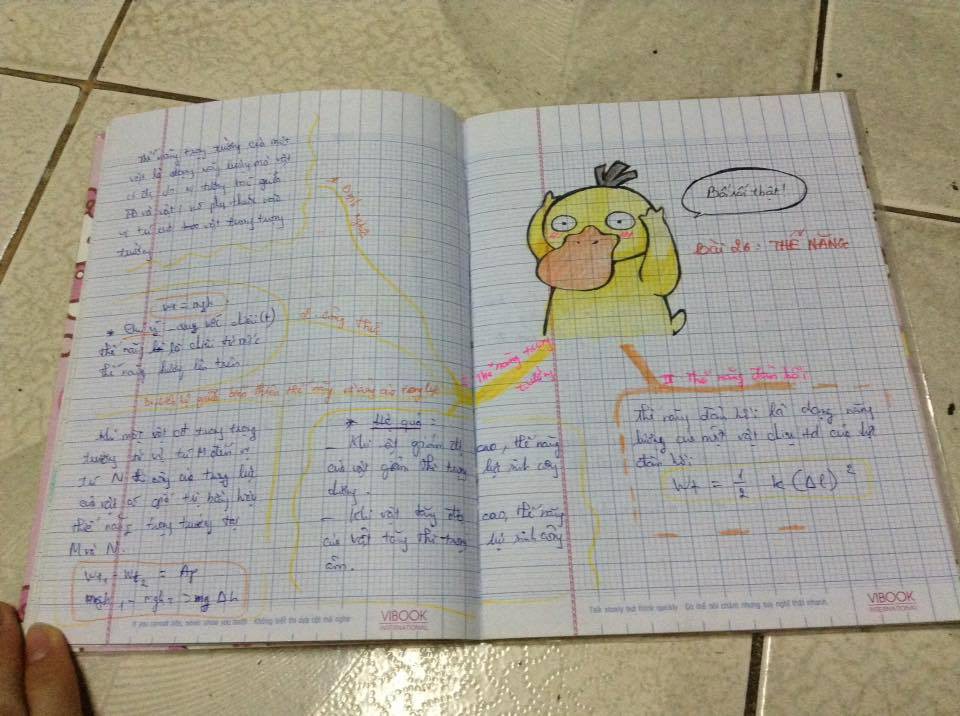 Thế năng trọng trường của một
vật là dạng năng lượng mà vật
có do vị tương tác giữa
TĐ và vật, nó phụ thuộc vào
vị trí của vật trong trọng
trường
1. Định nghĩa
Wt = mgh
* Chú ý
thế năng là
thế năng hướng lên trên.
2. công thức
biến thiên thế năng và công của trọng lực
Khi một vật cđ trong trọng
trường từ vị trí M đến vị
trí N thì công của trọng lực
của vật có giá trị bằng hiệu
thế năng trọng trường tại
M và N.
Wt1 - Wt2 = Ap
mgh1 - mgh2 = mgΔh
* Hệ quả:
- Khi vật giảm độ cao, thế năng
của vật giảm thì trọng lực sinh công
dương.
- Khi vật tăng độ cao, thế năng
của vật tăng thì trọng lực sinh công
âm.
If you cannot bite, never show your teeth - Không biết thì dựa cột mà nghe
VIBOOK
INTERNATIONAL
Bối rối thật!
Bài 26: THẾ NĂNG
I. Thế năng trọng
trường
II Thế năng đàn hồi:
Thế năng đàn hồi: là dạng năng
lượng của một vật chịu td của lực
đàn hồi:
Wt = 1/2 k (Δl)²
Talk slowly but think quickly - Có thể nói chậm nhưng suy nghĩ thật nhanh.
VIBOOK
INTERNATIONAL